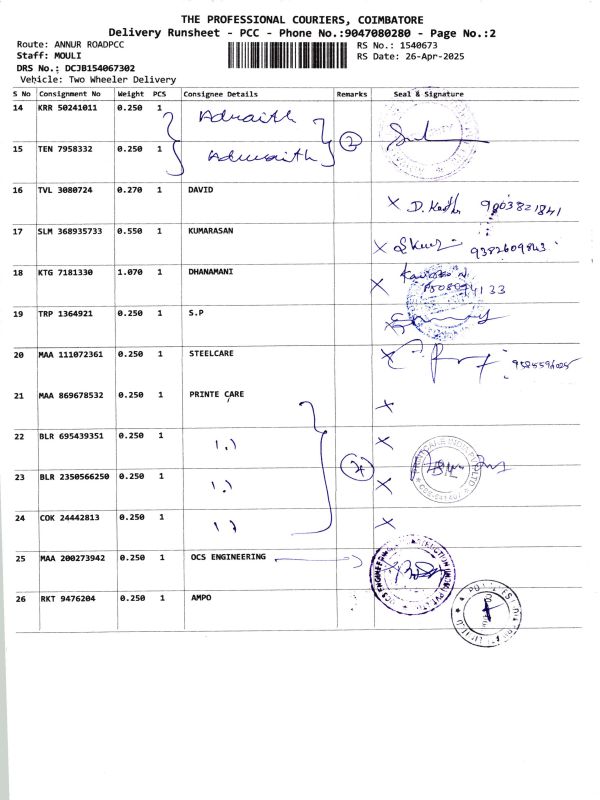 THE PROFESSIONAL COURIERS, COIMBATORE
Delivery Runsheet - PCC - Phone No.:9047080280 - Page No.:2
Route: ANNUR ROADPCC
RS No.: 1540673
Staff: MOULI
RS Date: 26-Apr-2025
DRS No.: DCJB154067302
Vehicle: Two Wheeler Delivery
S No Consignment No Weight PCS Consignee Details Remarks Seal & Signature
14 KRR 50241011 0.250 1 Adwaith
15 TEN 7958332 0.250 1 Adwaith 2
16 TVL 3080724 0.270 1 DAVID 9003821841
17 SLM 368935733 0.550 1 KUMARASAN 9382609843
18 KTG 7181330 1.070 1 DHANAMANI
19 TRP 1364921 0.250 1 S.P
20 MAA 111072361 0.250 1 STEELCARE
21 MAA 869678532 0.250 1 PRINTE CARE
22 BLR 695439351 0.250 1
23 BLR 2350566250 0.250 1
24 COK 24442813 0.250 1
25 MAA 200273942 0.250 1 OCS ENGINEERING
26 RKT 9476204 0.250 1 AMPO